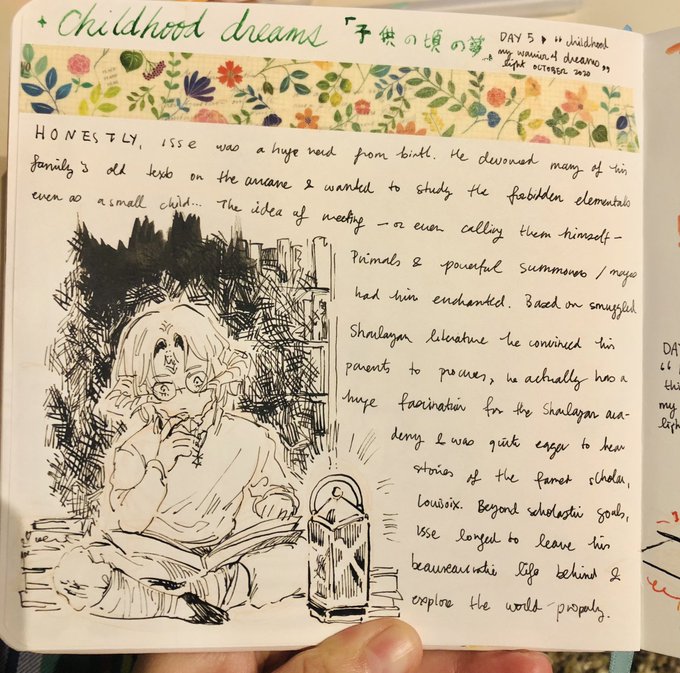 Childhood dreams 「子供の頃の夢
DAY 5 "childhood
my warrior of dreams"
light OCTOBER 2020
HONESTLY, isse was a huge nerd from birth. He devoured many of his
family's old texts on the arcane & wanted to study the forbidden elementals
even as a small child... The idea of meeting - or even calling them himself -
Primals & powerful summoners / mages
had him enchanted. Based on smuggled
Sharlayan literature he convinced his
parents to procure, he actually has a
huge fascination for the Sharlayan aca-
demy & was quite eager to hear
stories of the famed scholar,
Louisoix. Beyond scholastic goals,
isse longed to leave his
life behind &
explore the world properly.
DAY
"
thi
my
light